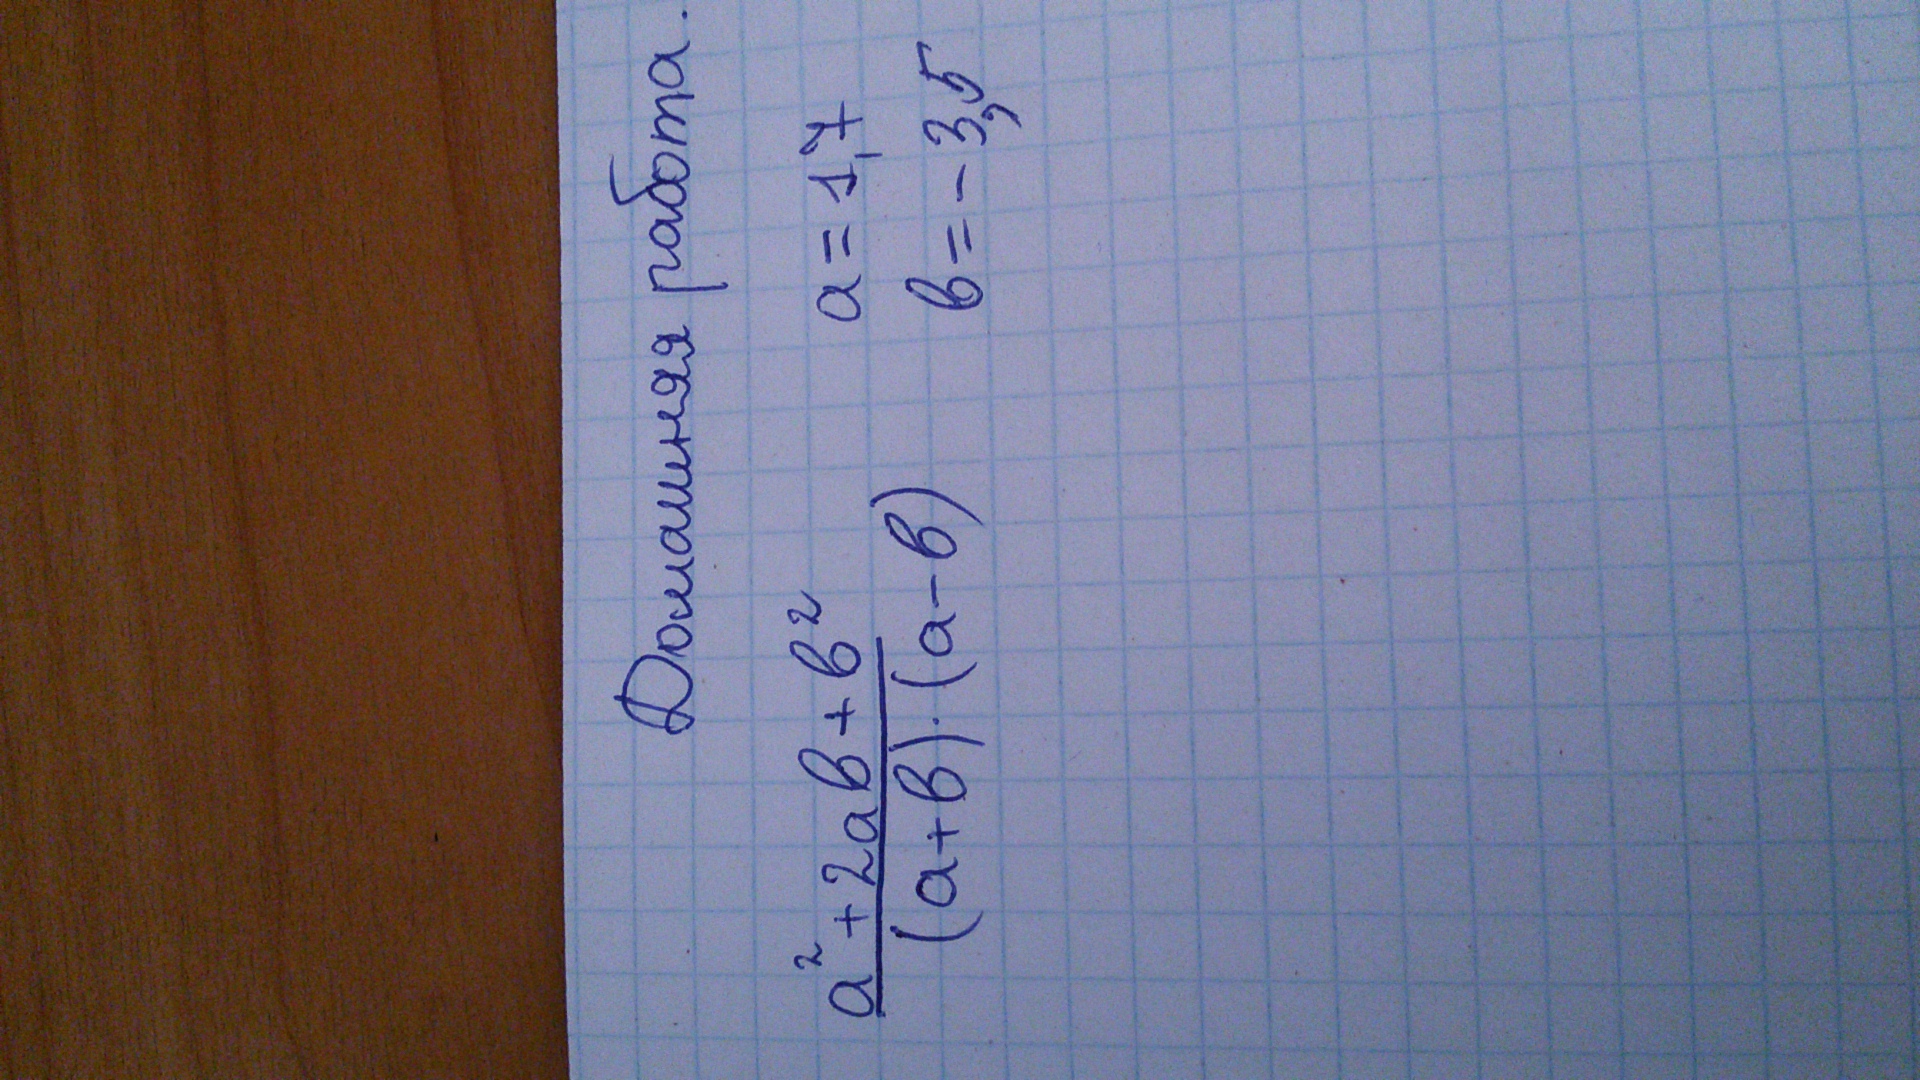 Домашняя работа.
a² + 2ab + b² a = 1,7
(a+b)·(a-b) b = -3,5